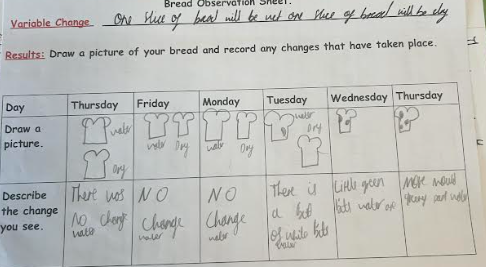 Bread Observation Sheet.
Variable Change One slice of bread will be wet one slice of bread will be dry
Results: Draw a picture of your bread and record any changes that have taken place.
Day Thursday Friday Monday Tuesday Wednesday Thursday
Draw a picture.
water
Dry
water Dry
water Dry
water
Dry
Describe the change you see.
There was
NO change
water
NO
Change
water
NO
Change
water
There is
a bit
of white bits
water
Little green
bits water
More mould